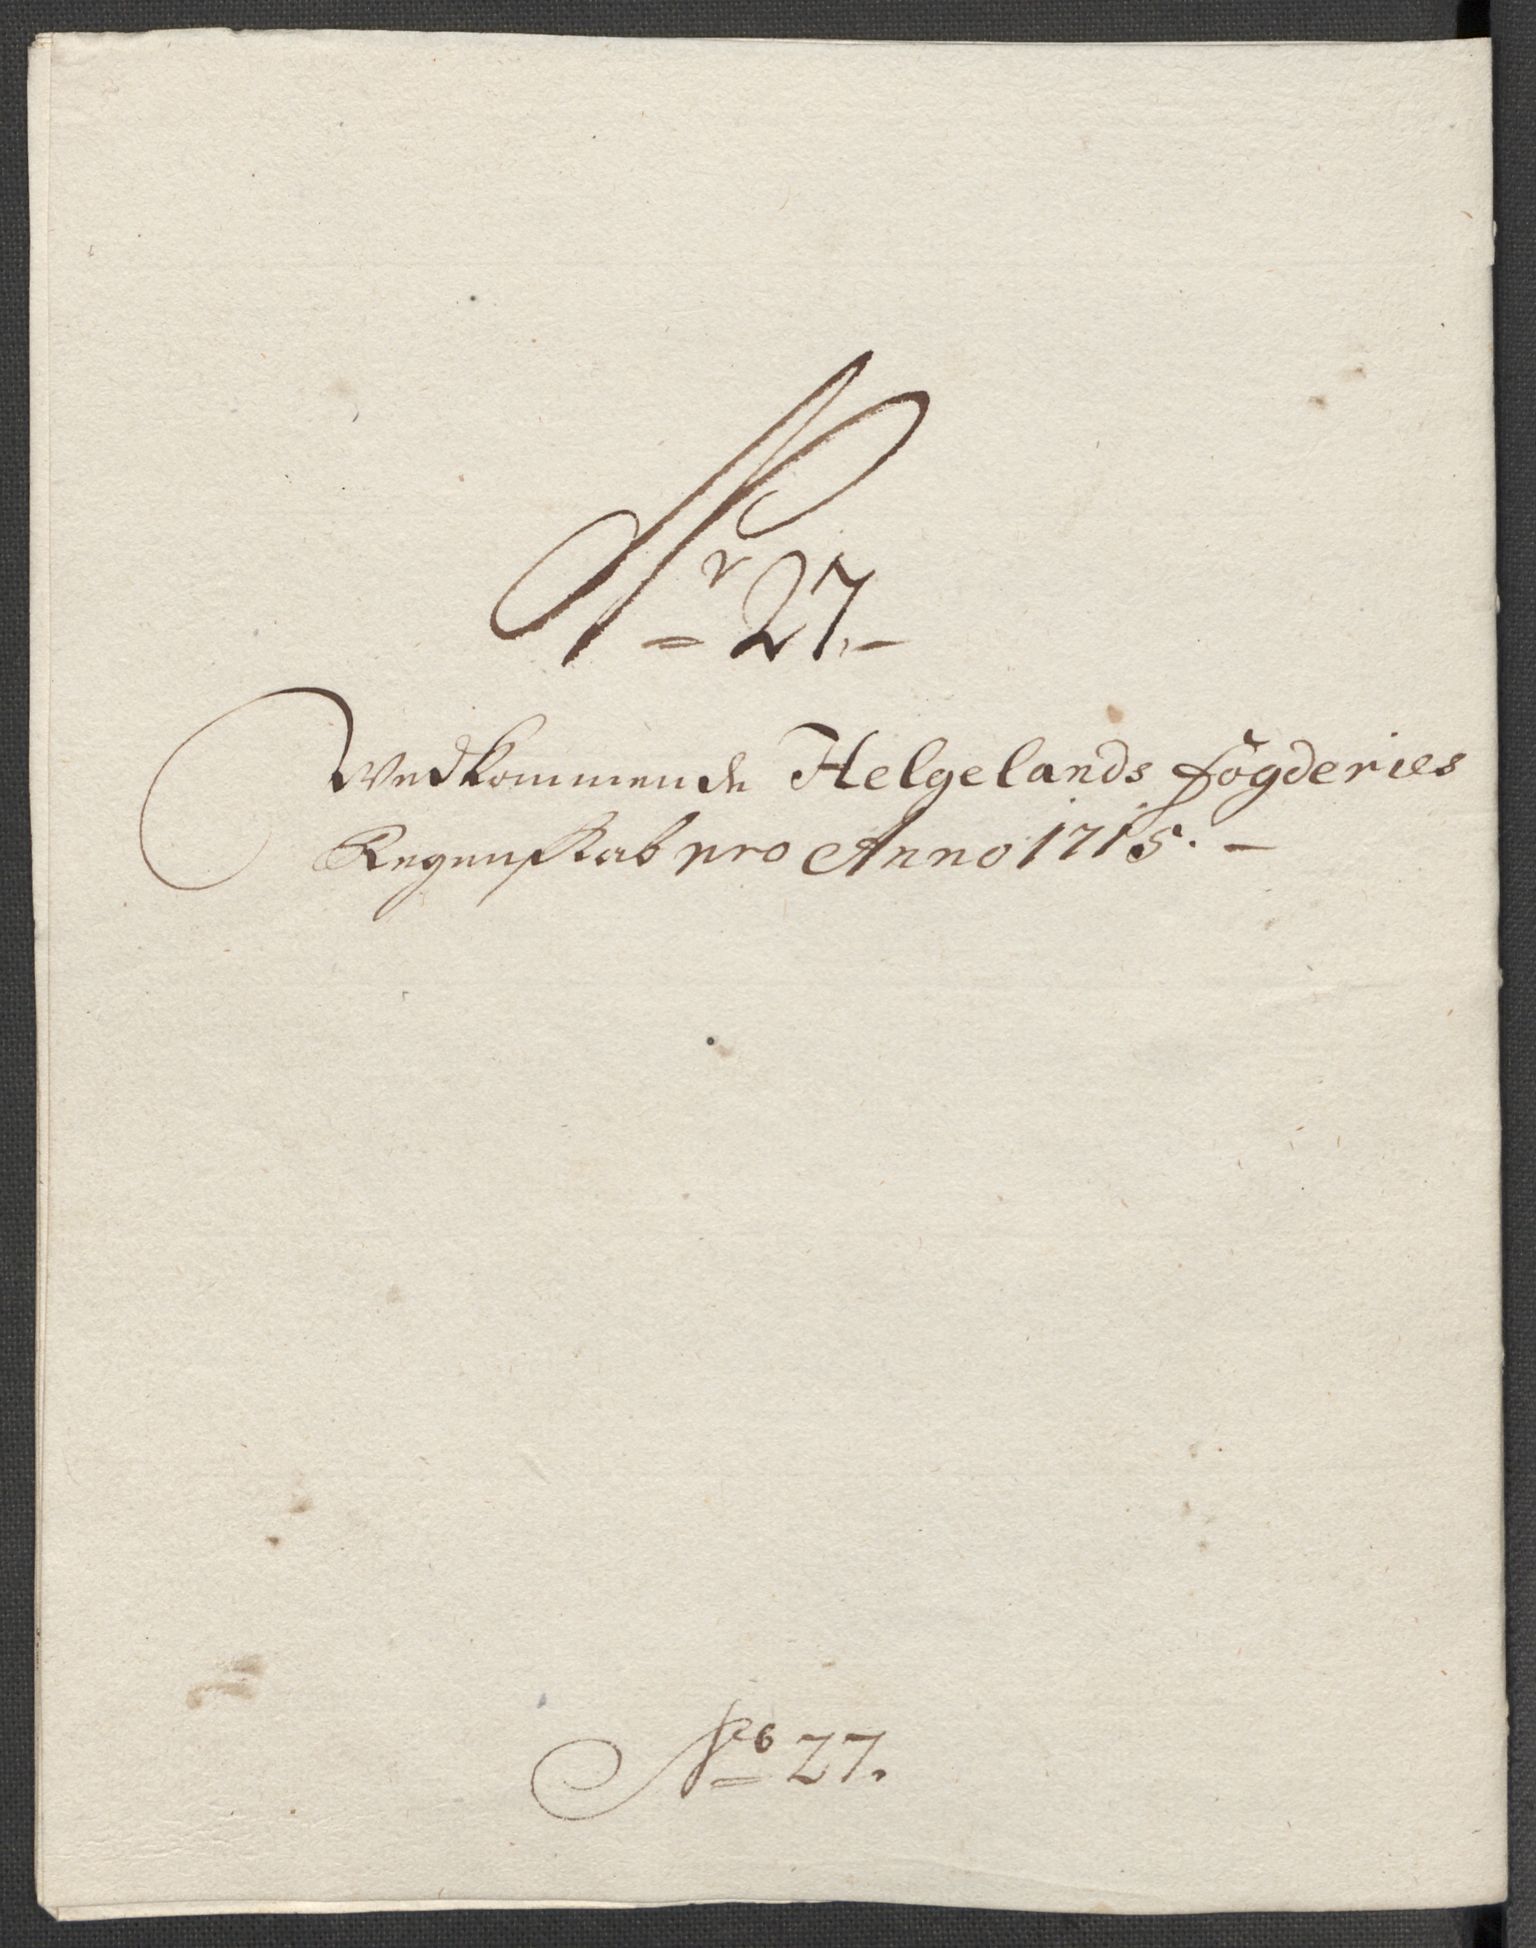 Nr 27.
Vedkommende Helgelands fögderies
Regenskab pro Anno 1715.
No 27.